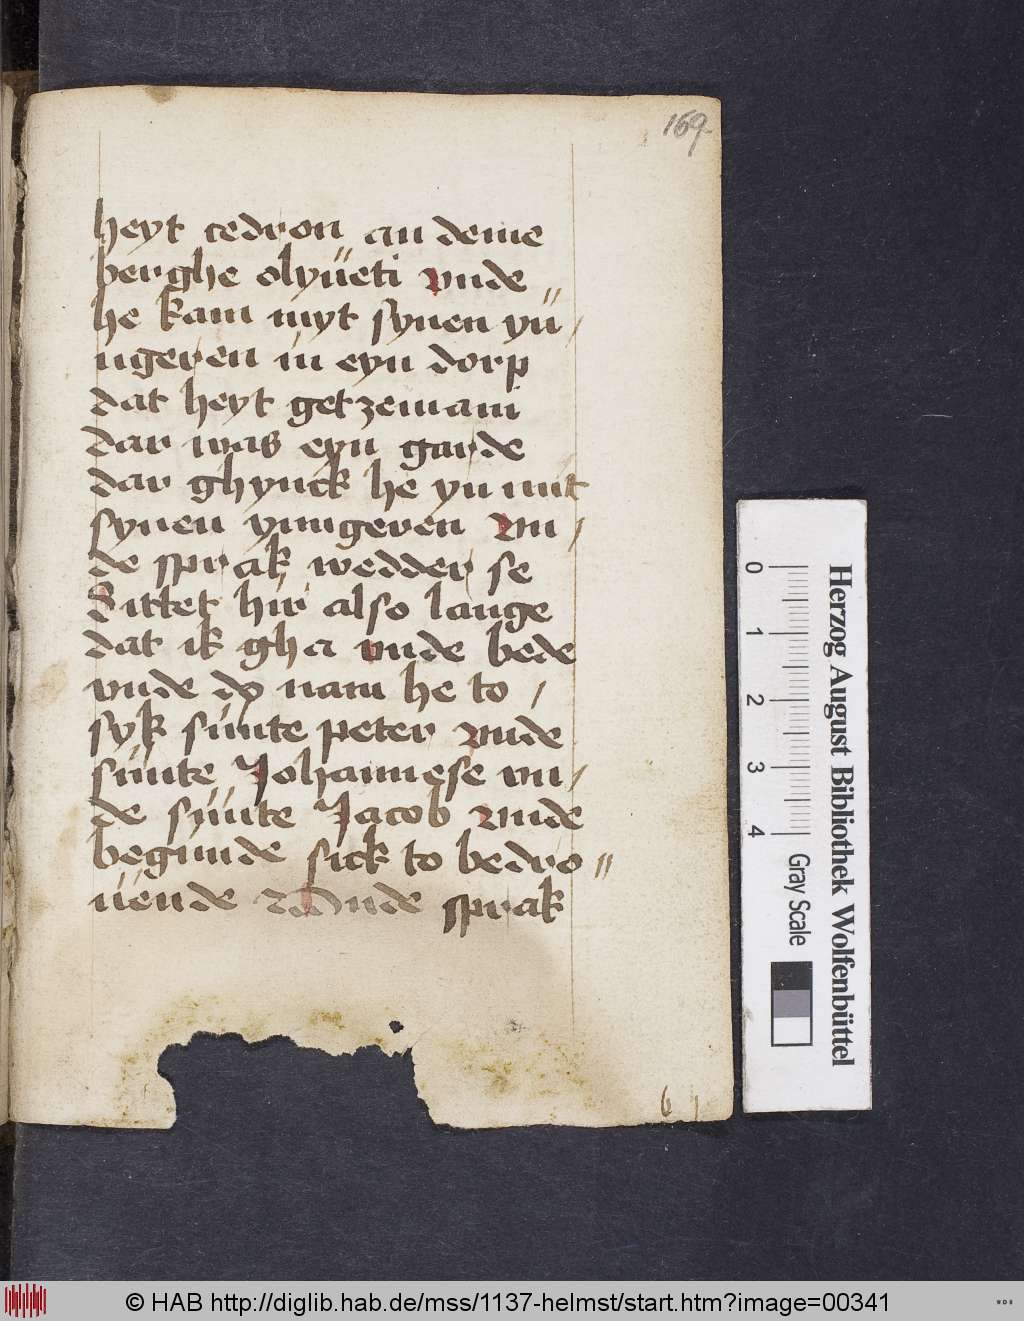 169
heyt cedron an deme
berghe olyueti vnde
he kam myt synen yu//
ngeren in eyn dorp
dat heyt getzemani
dar was eyn garde
dar ghynck he yn mit
synen yungeren vn/
de sprak wedder se
Sittet hir also lange
dat ik gha vnde bede
vnde do nam he to /
syk sunte peter vnde
sunte Johannese vn/
de synte Jacob vnde
begunde sick to bedro//
uende vnde sprak
0 1 2 3 4
Herzog August Bibliothek Wolfenbüttel
Gray Scale
© HAB http://diglib.hab.de/mss/1137-helmst/start.htm?image=00341